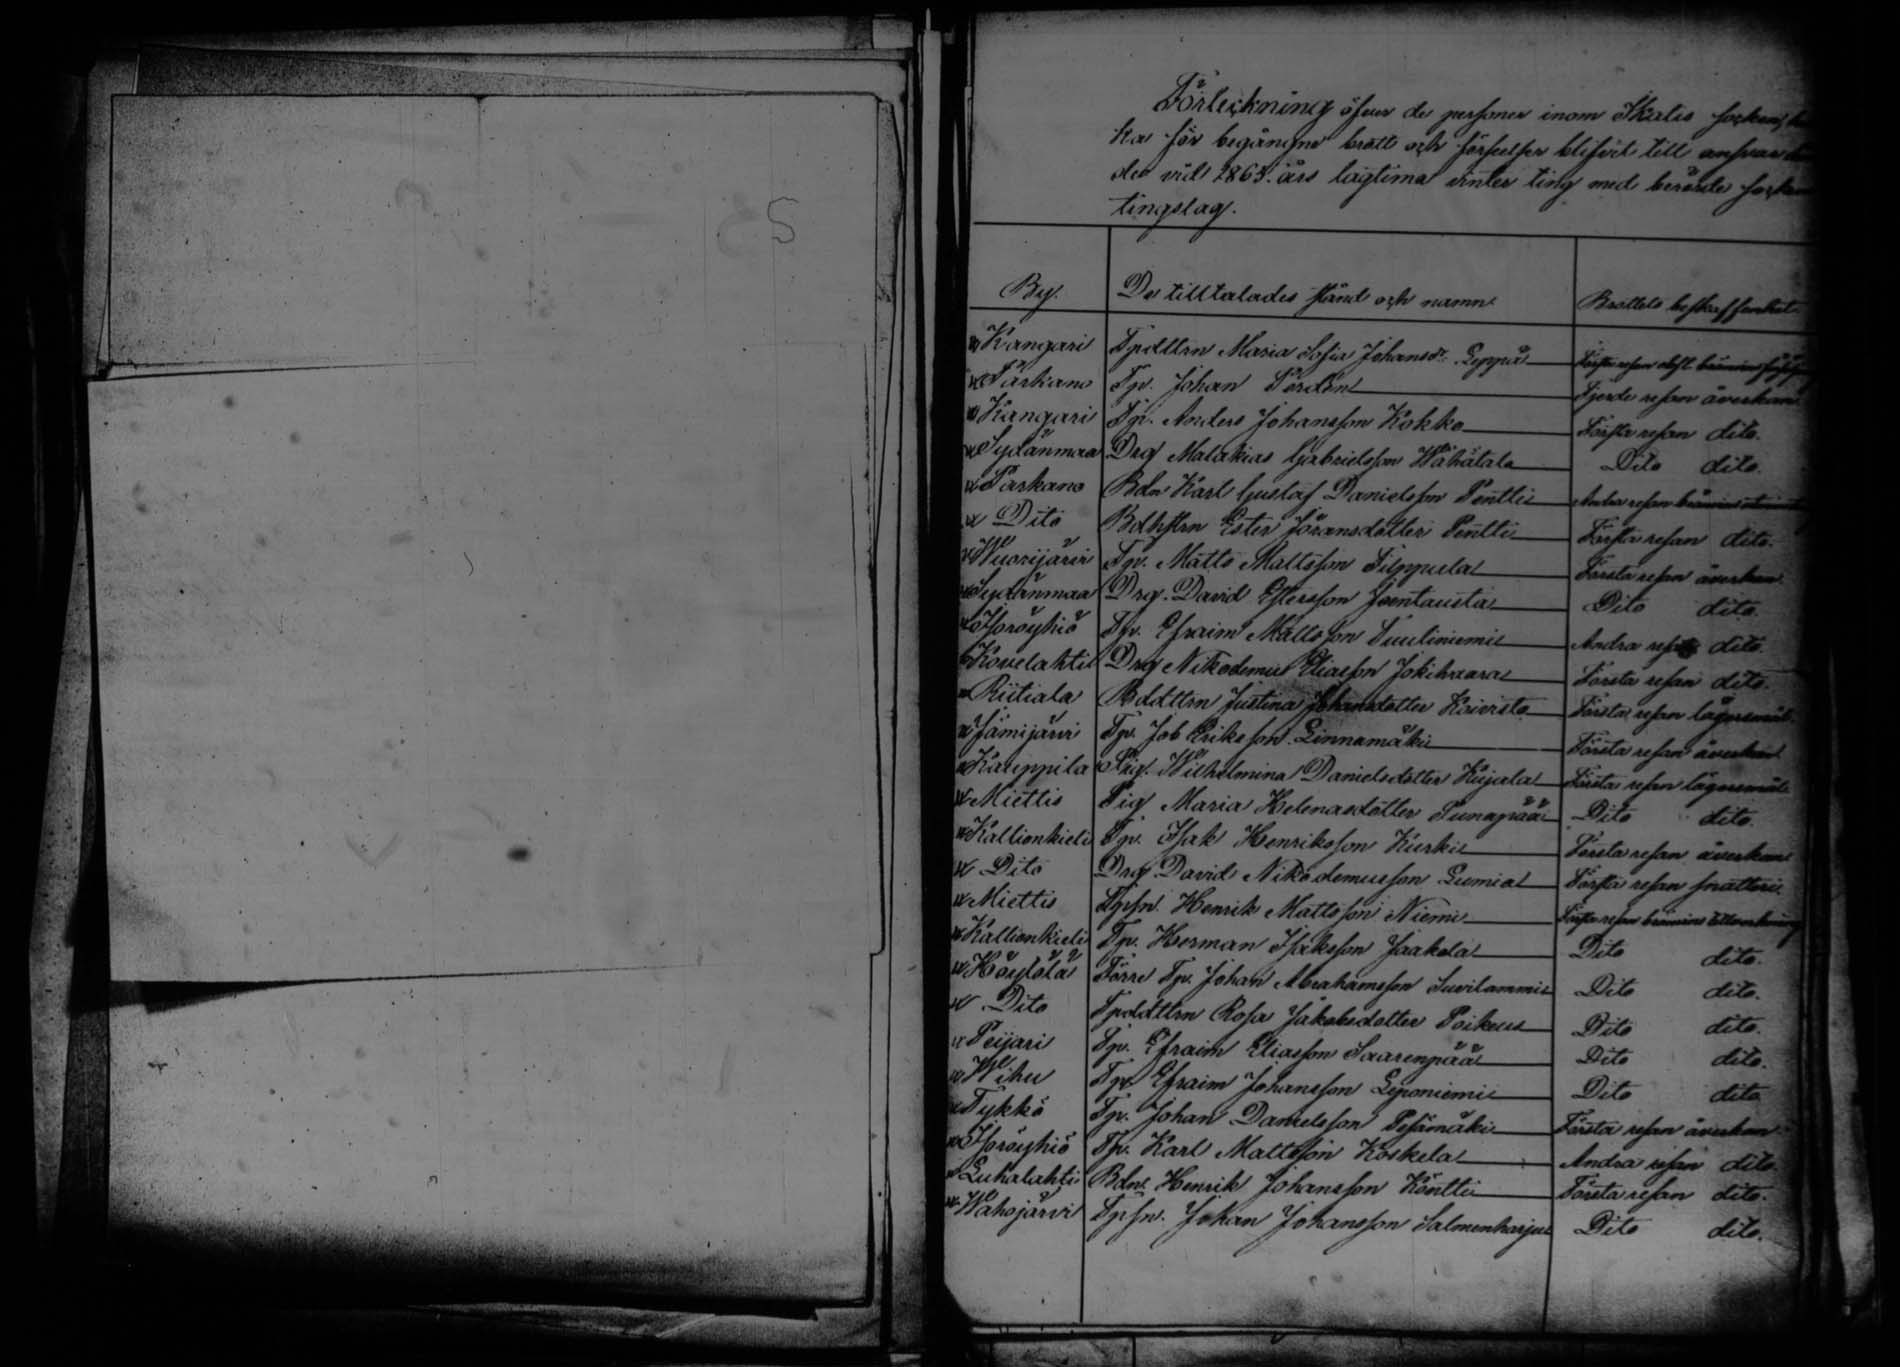 Förteckning öfver de personer inom Ikalis socken,
ka för begångne brott och förseelser blifvit till ansvar
de vid 1865 års lagtima vinter ting med berörde socken
tingslag.
By. De tilltalades stånd och namn Brottets beskaffenhet
Kangari Tpdttrn Maria Sofia Johansdr Leppä Första resan
Parkano Tp. Johan Perdén Fjerde resan åverkan
Kangari Tp. Anders Johansson Kokko Första resan dito.
Sydänmaa Drg Malakias Gabrielsson Wähätalo Dito dito.
Parkano Bdn Karl Gustaf Danielsson Pentti Andra resan
Dito Bdhstrn Ester Göransdotter Pentti Första resan dito.
Wuorijärvi Tp. Matts Mattsson Filppula Första resan åverkan
Sydänmaa Drg. David Estersson Joentausta Dito dito.
Höröyhiö Tp. Efraim Mattsson Tuuliniemi Andra resan dito.
Kovelahti Drg Nikodemus Eliasson Jokihaara Första resan dito.
Riitiala Bddttrn Justina Johansdotter Koivisto Första resan lägersmål
Jämijärvi Tp. Job Eriksson Linnamäki Första resan åverkan
Kauppila Pig. Wilhelmina Danielsdotter Kujala Första resan lägersmål
Miettis Pig Maria Helenasdotter Sunapää Dito dito
Kallionkieli Tp. Isak Henriksson Kurki Första resan åverkan
Dito Drg David Nikodemusson Lumia Första resan snatteri
Miettis Tpsn. Henrik Mattsson Niemi Första resan bränvins tillverkning
Kallionkieli Tp. Herman Isaksson Jaakola Dito dito.
Höytölä Förre Tp. Johan Abrahamsson Suvilammi Dito dito.
Dito Tpddttrn Rosa Jakobsdotter Poikeus Dito dito.
Peijari Tp. Efraim Eliasson Saarenpää Dito dito.
Wihu Tp. Efraim Johansson Leponiemi Dito dito
Tykkö Tp. Johan Danielsson Pesämäki Första resan åverkan
Höröyhiö Tp. Karl Mattsson Koskela Andra resan dito.
Luhalahti Bdn Henrik Johansson Köntti Första resan dito.
Wahojärvi Tpsn. Johan Johansson Salmenharju Dito dito.